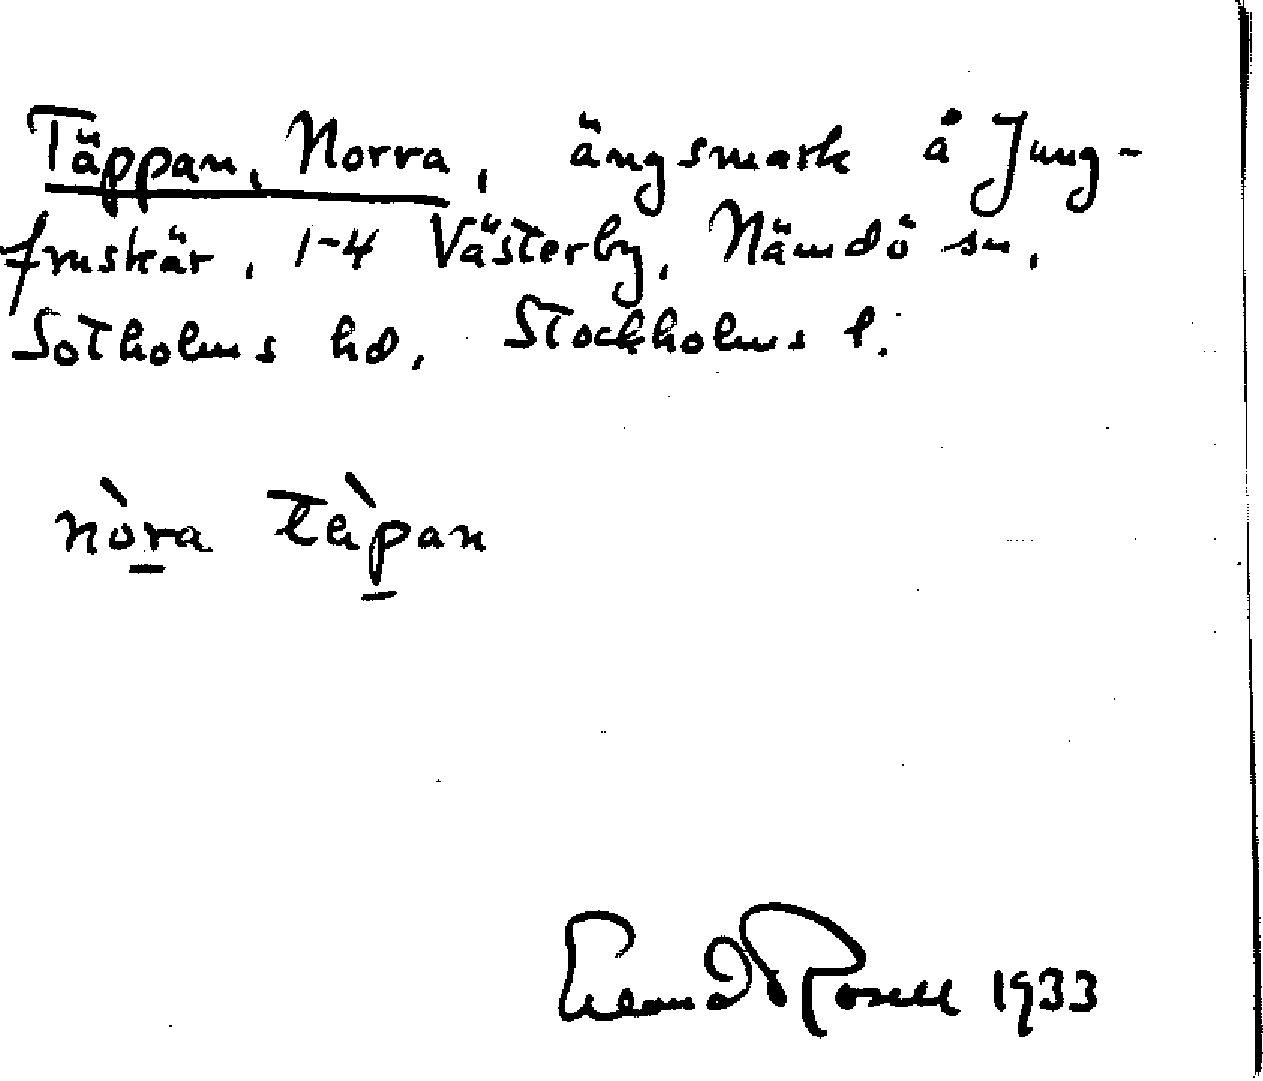 Täppan, Norra, ängsmark å Jung-
fruskär, 1-4 Västerby, Nämdö sn,
Sotholms hd, Stockholms l.
nòra tèpan
Erland Rosell 1933